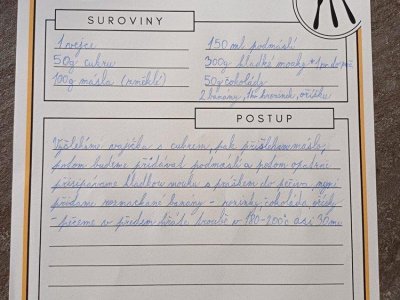 SUROVINY
1 vejce
50g cukru
100g másla (změklé)
150 ml podmáslí
300g hladké mouky + 1 pr. do peč.
50g čokolády
2 banány, 1hr rozinek, oříšky
POSTUP
Vyšleháme vajíčka s cukrem, pak přišleháme máslo,
potom budeme přidávat podmáslí a potom opatrně
přisypáváme hladkou mouku s práškem do pečiva, nyní
přidáme rozmačkané banány - rozinky, čokoláda, ořechy
- pečeme v předem troubě v 180-200°C asi 30 min